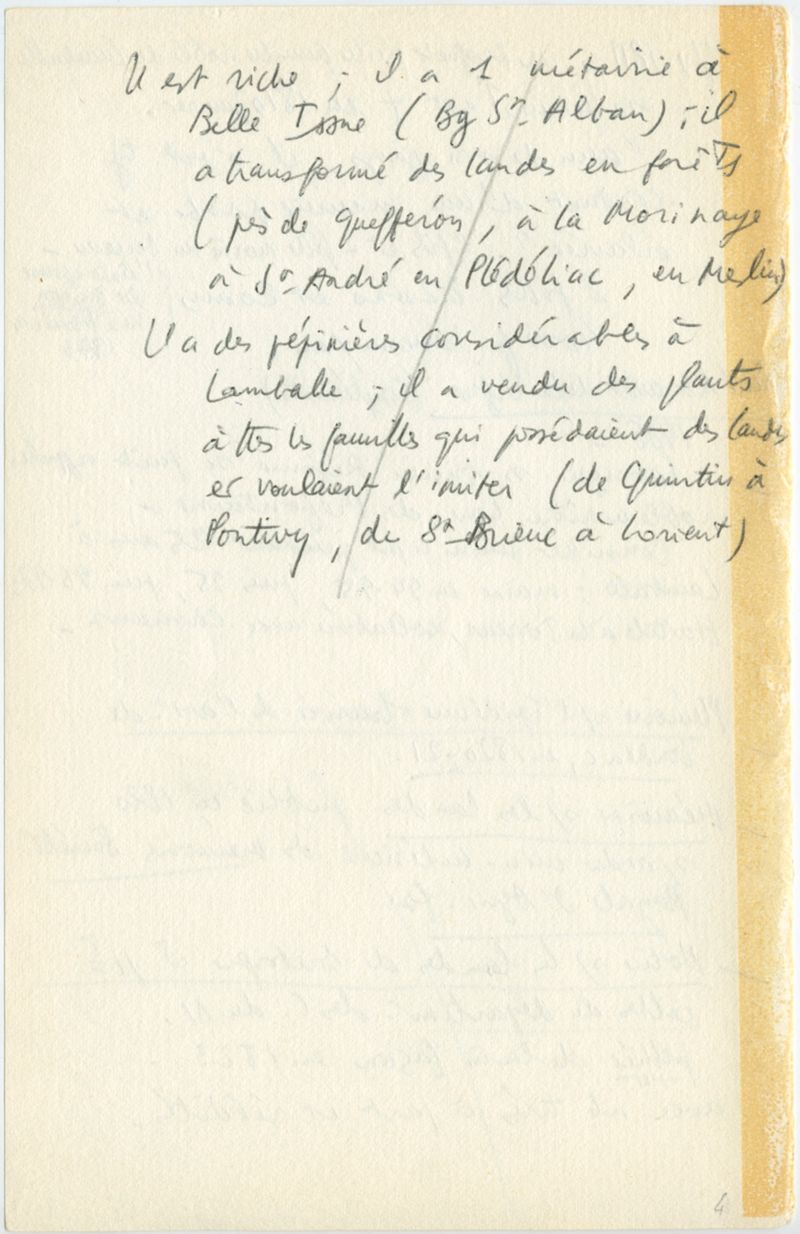 Il est riche ; il a 1 métairie à
Belle Issue (Bg St Alban) ; il
a transformé des landes en forêts
(près de Quefféron, à la Morinaye
à St André en Plédéliac, en Meslin)
Il a des pépinières considérables à
Lamballe ; il a vendu des plants
à ttes les familles qui possédaient des landes
et voulaient l'imiter (de Quintin à
Pontivy, de St Brieuc à Lorient)
4